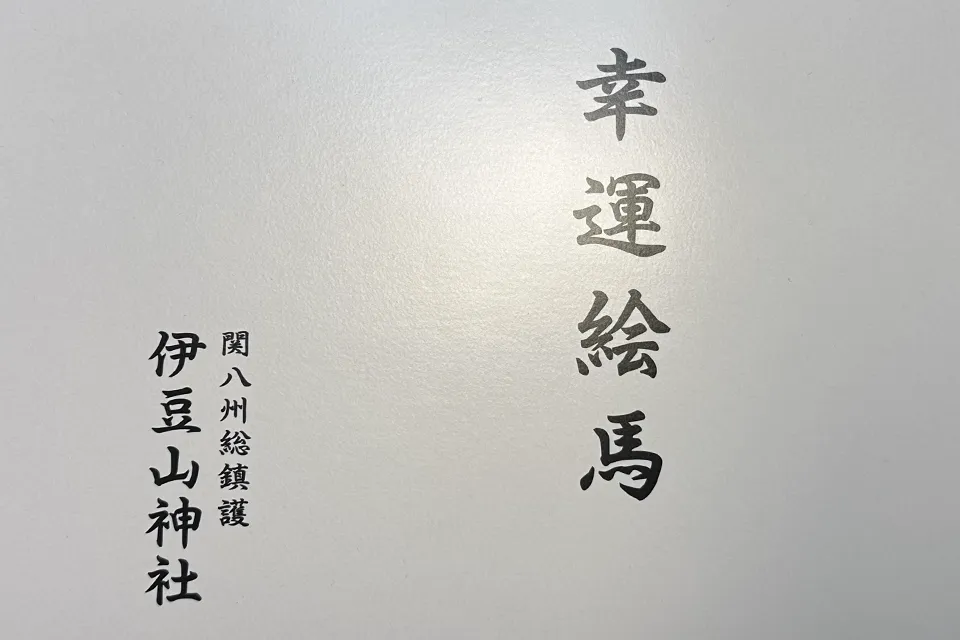 幸運絵馬
関八州総鎮護
伊豆山神社